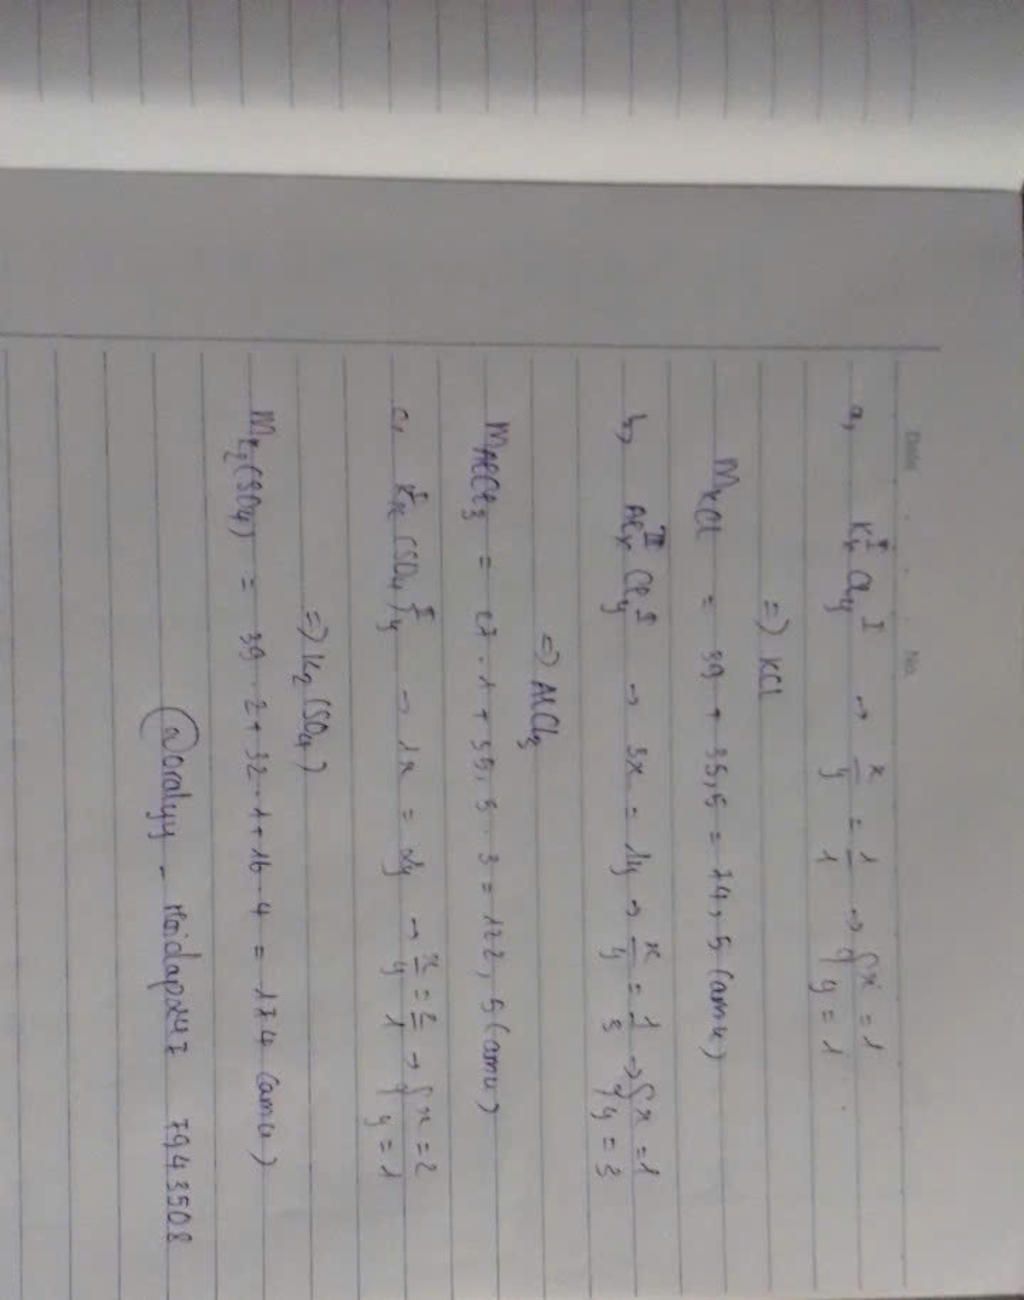 Date No.
a, KxI ClyI → x/y = 1/1 → { x = 1 y = 1
=> KCl
MKCl = 39 + 35,5 = 74,5 (amu)
b, AlxIII ClyI → 3x = 1y → x/y = 1/3 → { x = 1 y = 3
=> AlCl3
MAlCl3 = 27 . 1 + 35,5 . 3 = 122,5 (amu)
c, KxI (SO4)yII → 1x = 2y → x/y = 2/1 → { x = 2 y = 1
=> K2 (SO4)
MK2(SO4) = 39 . 2 + 32 . 1 + 16 . 4 = 174 (amu)
@oralyy - Hoidap247 7943508